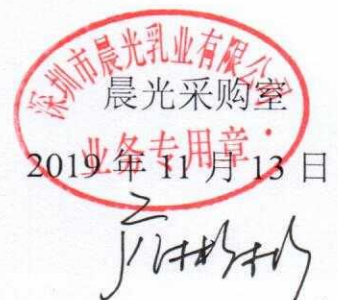 深圳市晨光乳业有限公司
晨光采购室
业务专用章
2019 年 11 月 13 日